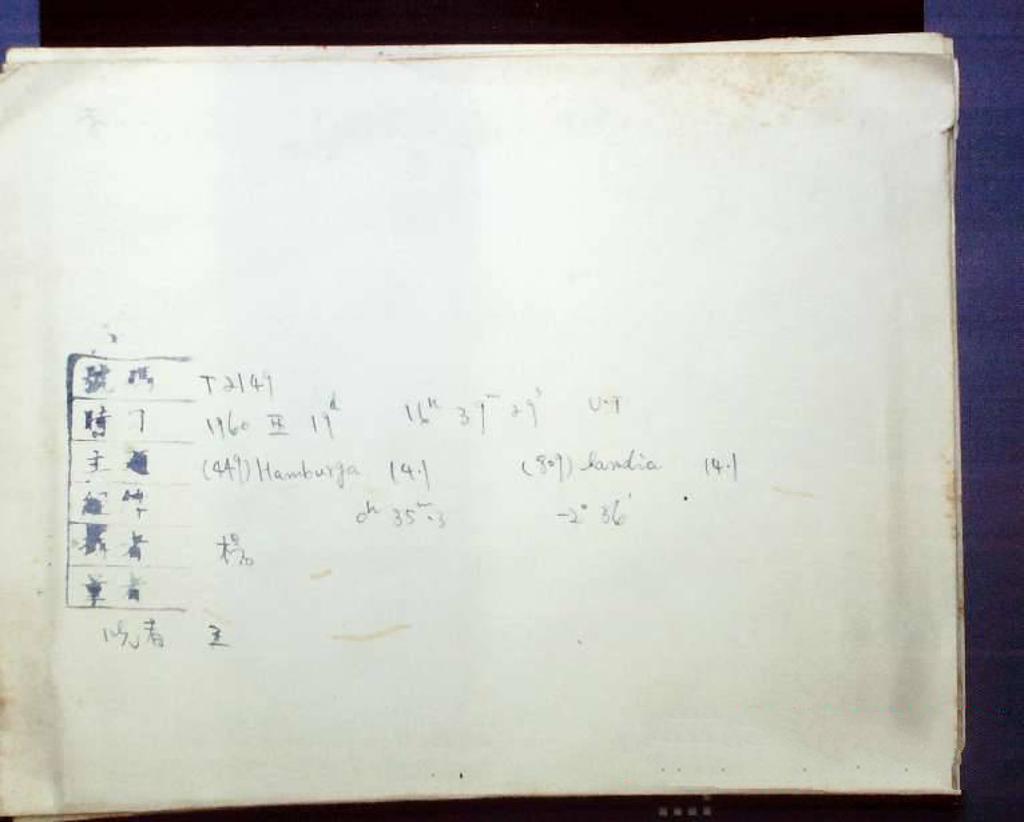 號碼 T 2149
時 1960 IX 19d 16h 39m 29s U.T
主題 (449) Hamburga 14.1 (809) Lundia 14.1
0h 35m.3 -2° 36'
者 楊
者
者 王